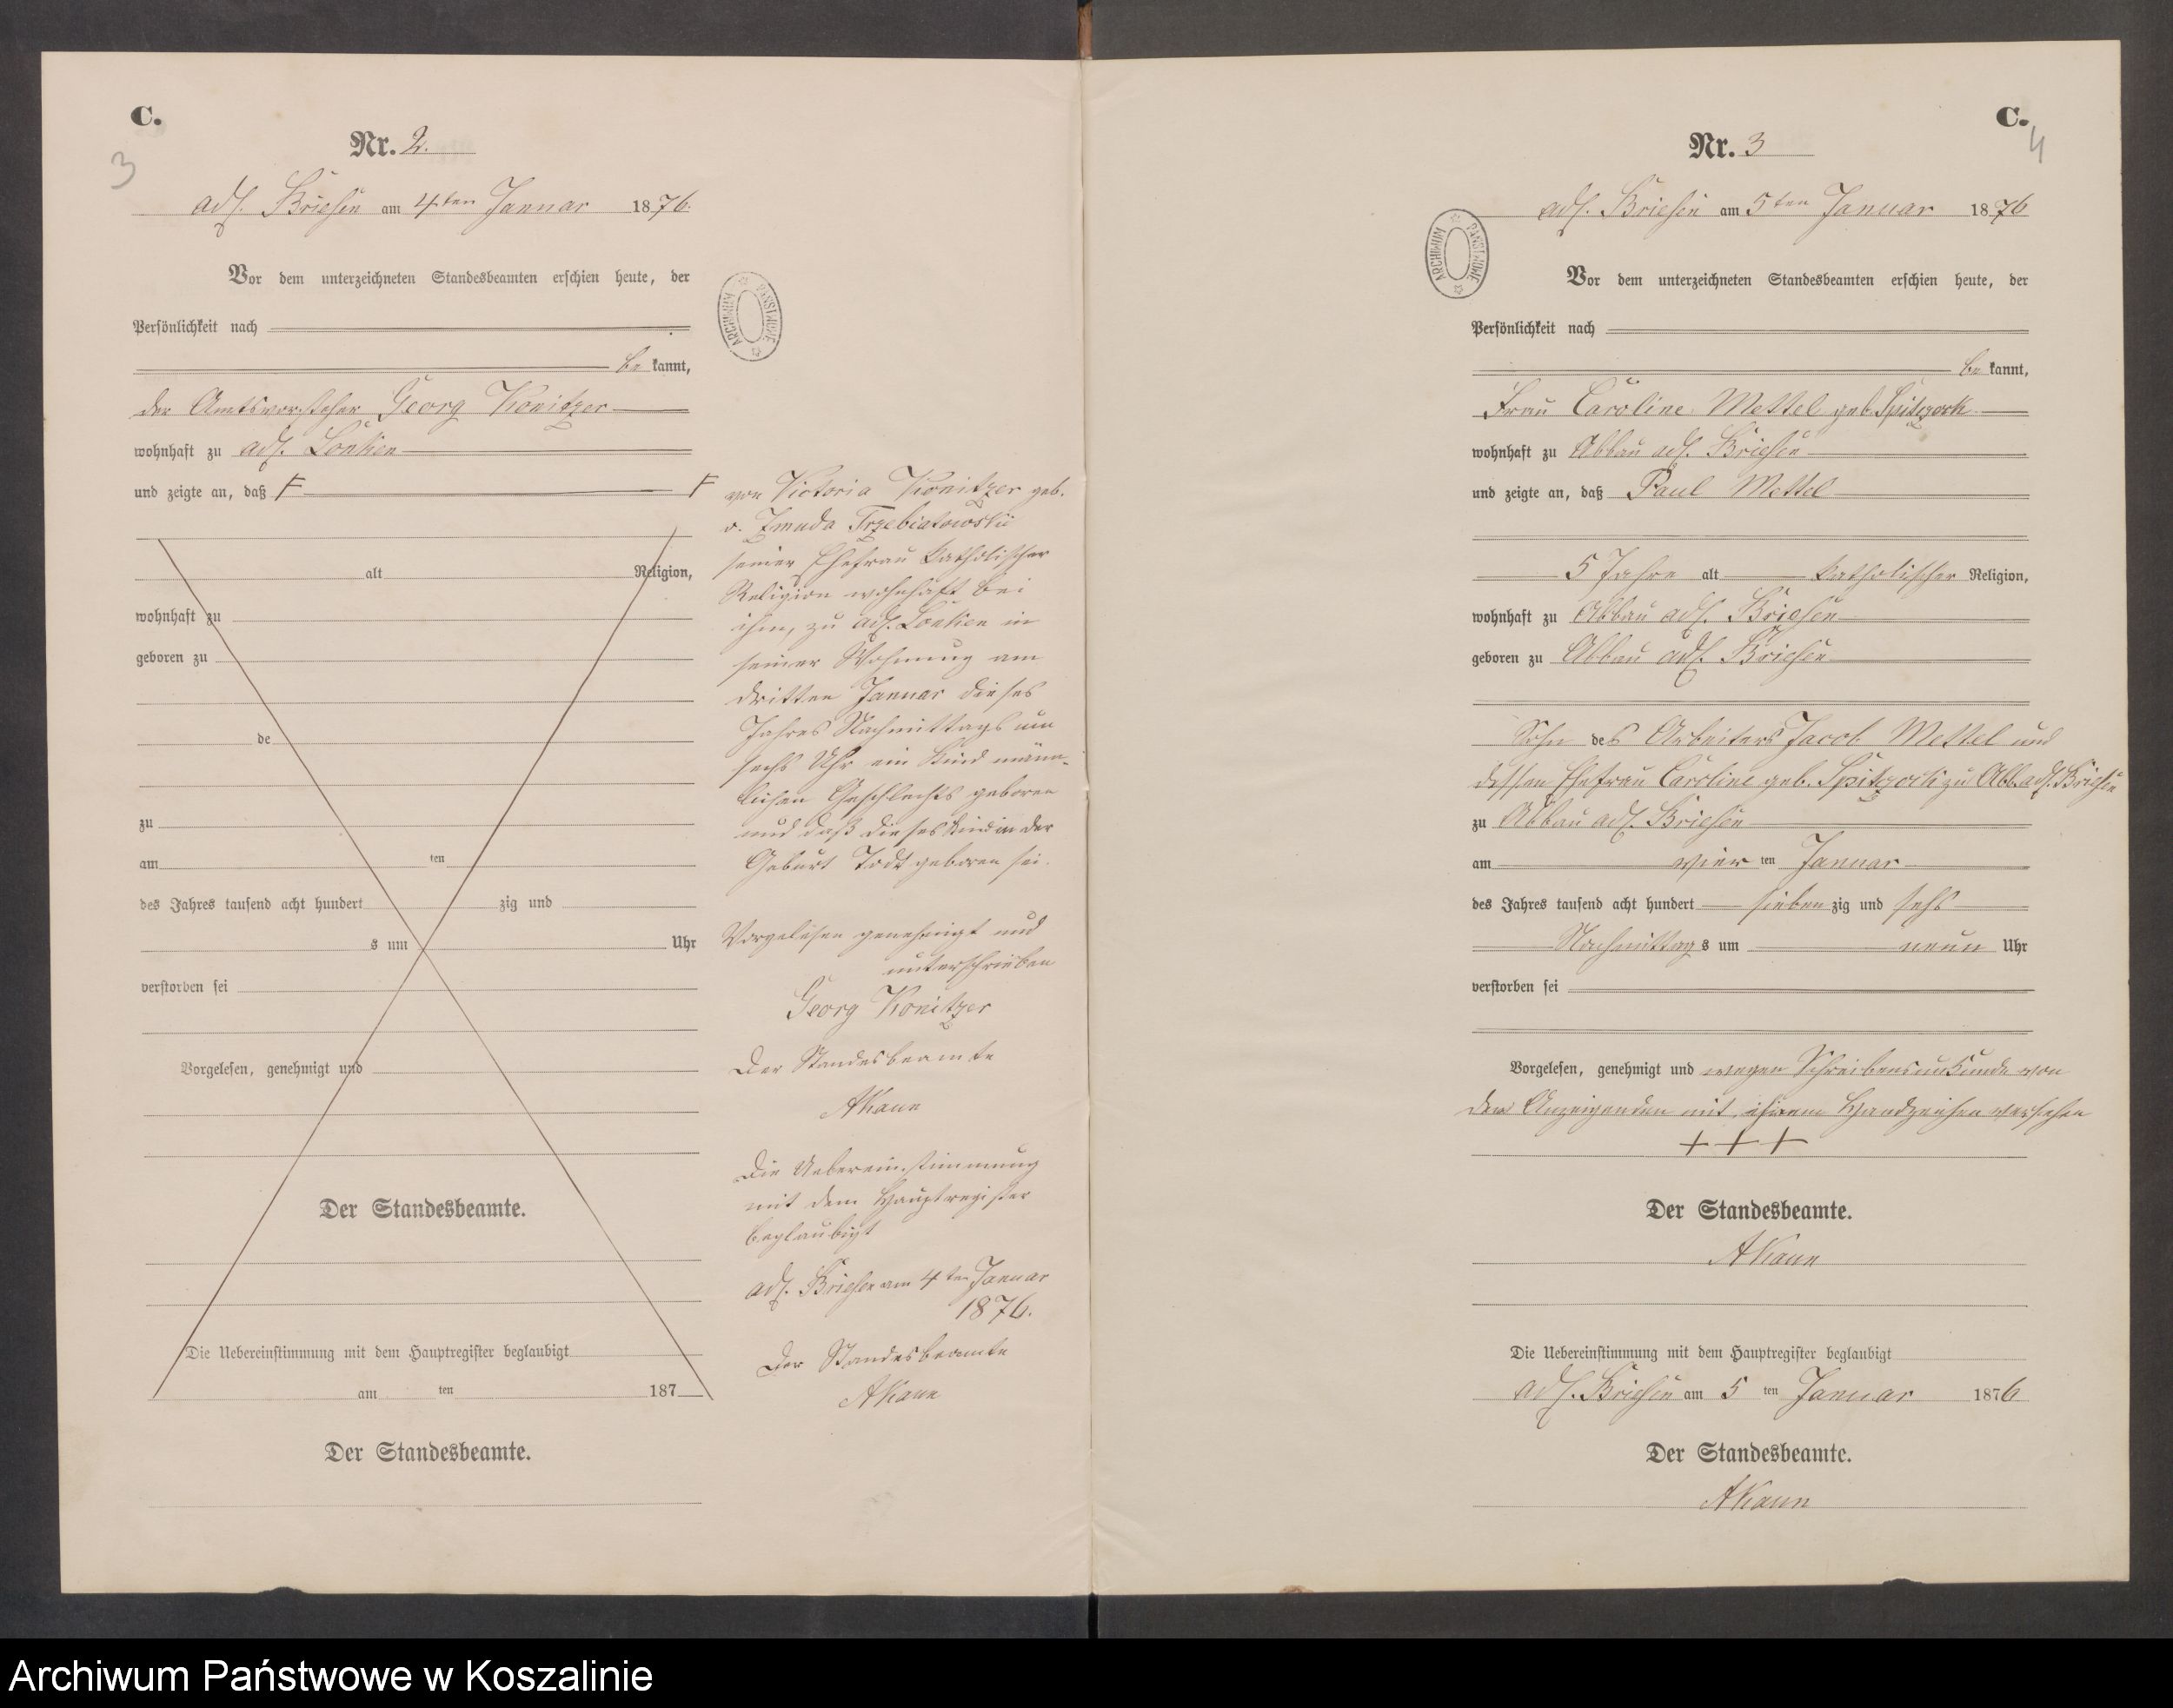 C.
3
Nr. 2.
adl. Briesen am 4ten Januar 1876.
Vor dem unterzeichneten Standesbeamten erschien heute, der
Persönlichkeit nach
be kannt,
der Amtsvorsteher Georg Konitzer
wohnhaft zu adl. Lonken
und zeigte an, daß F
alt Religion,
wohnhaft zu
geboren zu
de
zu
am ten
des Jahres tausend acht hundert zig und
s um Uhr
verstorben sei
Vorgelesen, genehmigt und
Der Standesbeamte.
Die Uebereinstimmung mit dem Hauptregister beglaubigt
am ten 187
Der Standesbeamte.
ARCHIWUM PAŃSTWOWE
F von Victoria Konitzer geb.
v. Zmuda Trzebiatowski
seiner Ehefrau katholischer
Religion wohnhaft bei
ihm, zu adl. Lonken in
seiner Wohnung am
dritten Januar dieses
Jahres Nachmittags um
sechs Uhr ein Kind männ-
lichen Geschlechts geboren
und daß dieses Kind in der
Geburt Todt geboren sei.
Vorgelesen genehmigt und
unterschrieben
Georg Konitzer
Der Standesbeamte
AKaun
Die Uebereinstimmung
mit dem Hauptregister
beglaubigt
adl. Briesen am 4ten Januar
1876.
Der Standesbeamte
AKaun
C.
4
Nr. 3
adl. Briesen am 5ten Januar 1876
ARCHIWUM PAŃSTWOWE
Vor dem unterzeichneten Standesbeamten erschien heute, der
Persönlichkeit nach
be kannt,
Frau Caroline Mettel geb. Spitzock
wohnhaft zu Abbau adl. Briesen
und zeigte an, daß Paul Mettel
5 Jahre alt katholischer Religion,
wohnhaft zu Abbau adl. Briesen
geboren zu Abbau adl. Briesen
Sohn des Arbeiters Jacob Mettel und
dessen Ehefrau Caroline geb. Spitzock zu Abb. adl. Briesen
zu Abbau adl. Briesen
am vier ten Januar
des Jahres tausend acht hundert sieben zig und sechs
Nachmittag s um neun Uhr
verstorben sei
Vorgelesen, genehmigt und wegen Schreibensunkunde von
der Anzeigenden mit ihrem Handzeichen versehen
+ + +
Der Standesbeamte.
AKaun
Die Uebereinstimmung mit dem Hauptregister beglaubigt
adl. Briesen am 5 ten Januar 1876
Der Standesbeamte.
AKaun
Archiwum Państwowe w Koszalinie